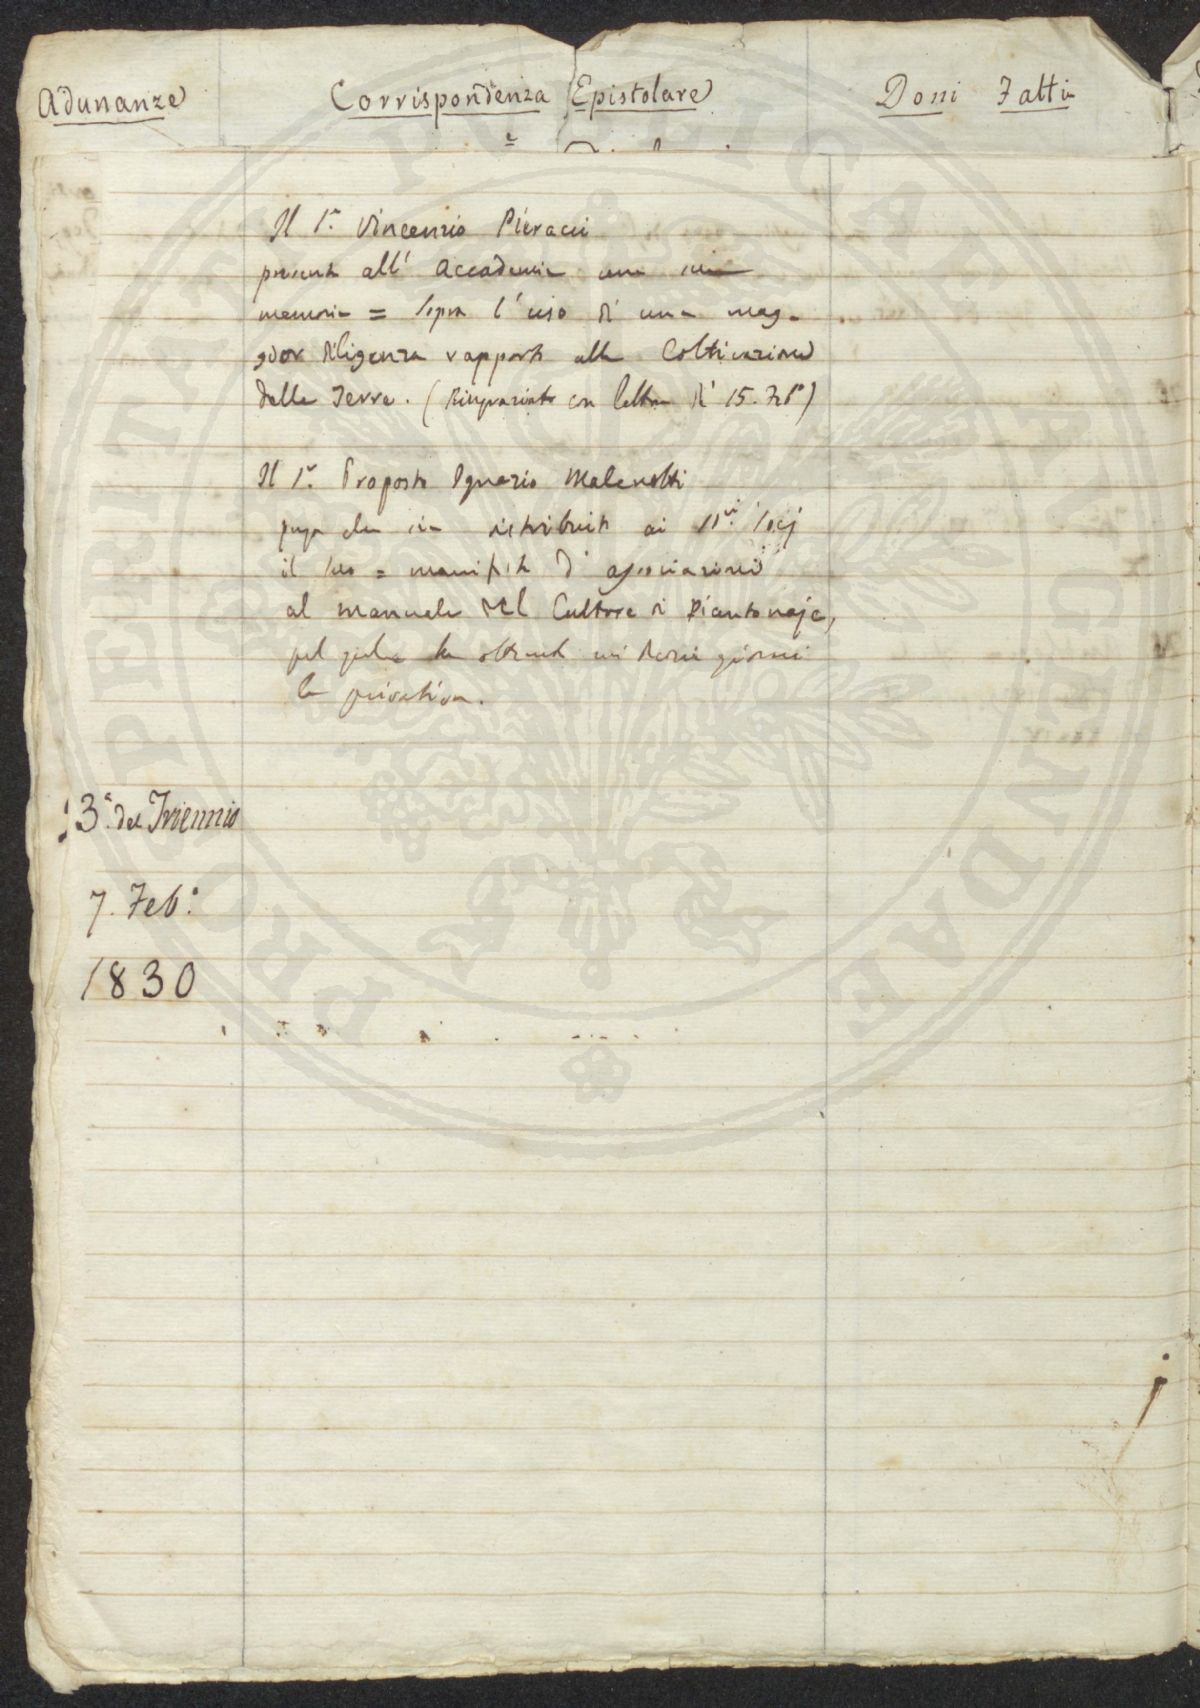 Adunanze Corrispondenza Epistolare Doni Fatti
Il Sr. Vincenzio Pieracci
presenta all' Accademia una sua
memoria = Sopra l'uso di una mag-
gior diligenza rapporto alla Coltivazione
delle Terre. (Ringraziato con lettera de' 15. Febo)
Il Sr. Proposto Ignazio Malenotti
prega che sia distribuito ai SSri. Socj
il suo = manifesto d'associazione
al manuale del Cultore di Piantonaje,
pel quale ha ottenuto nei scorsi giorni
la privativa.
3a. del Triennio
7. Feb:o
1830
PROPERITATI PUBLICAE AUGENDAE